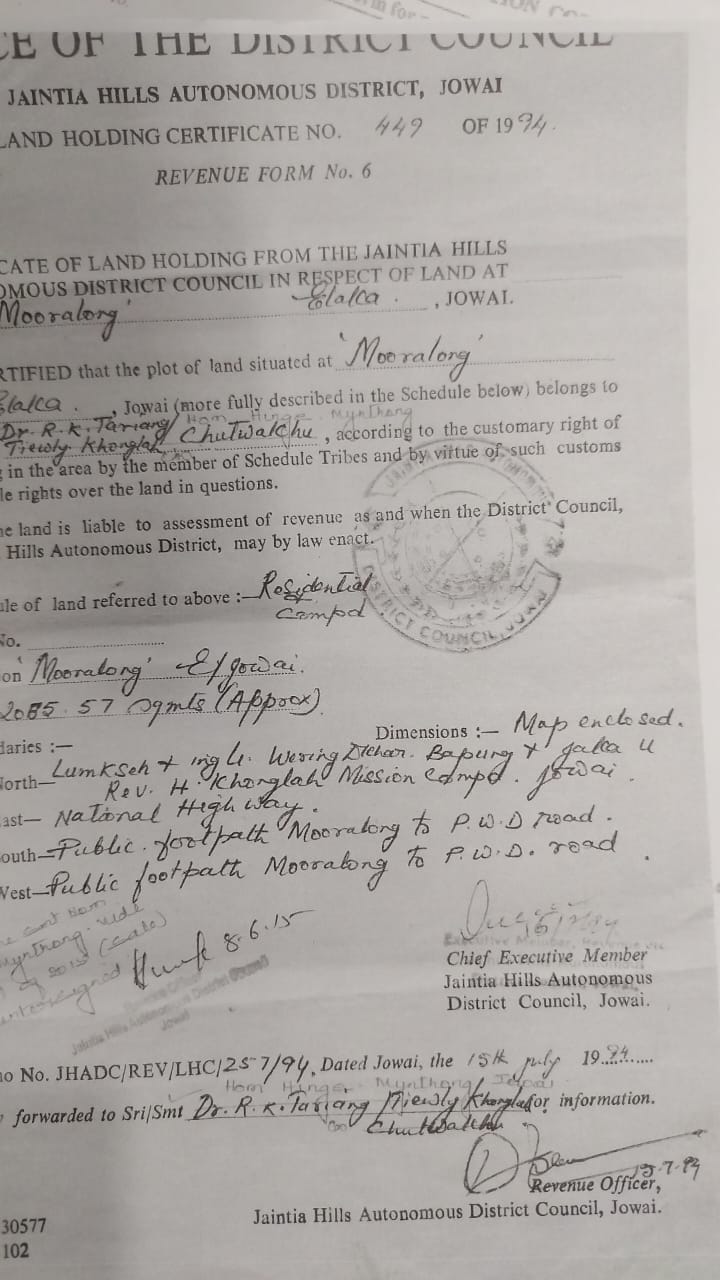 CE OF THE DISTRICT COUNCIL
JAINTIA HILLS AUTONOMOUS DISTRICT, JOWAI
LAND HOLDING CERTIFICATE NO. 449 OF 1994.
REVENUE FORM No. 6
CATE OF LAND HOLDING FROM THE JAINTIA HILLS
OMOUS DISTRICT COUNCIL IN RESPECT OF LAND AT
Mooralong' Elalca . , JOWAI.
RTIFIED that the plot of land situated at 'Mooralong'
Elalca . , Jowai (more fully described in the Schedule below) belongs to
Ham Hinge Mynthong
Dr. R. K. Tariang / Chutwalchu , according to the customary right of
Triewly Khonglah
in the area by the member of Schedule Tribes and by virtue of such customs
le rights over the land in questions.
he land is liable to assessment of revenue as and when the District Council,
Hills Autonomous District, may by law enact.
ule of land referred to above :— Residential
Compd
No.
on 'Mooralong' E/Jowai.
2085.57 Sqmts (Approx)
Dimensions :— Map enclosed.
daries :—
North— Lumkseh &
Rev. H. Khonglah Mission Compd. Jowai.
ast— National High way.
outh— Public footpath Mooralong to P.W.D road.
West— Public footpath Mooralong to P.W.D. road.
8.6.15
Chief Executive Member
Jaintia Hills Autonomous
District Council, Jowai.
no No. JHADC/REV/LHC/257/94, Dated Jowai, the 15th July 1994
Mynthong Jowai
forwarded to Sri/Smt Dr. R. K. Tariang / Triewly Khonglah for information.
Chutwalchu
15-7-94
Revenue Officer,
Jaintia Hills Autonomous District Council, Jowai.
30577
102